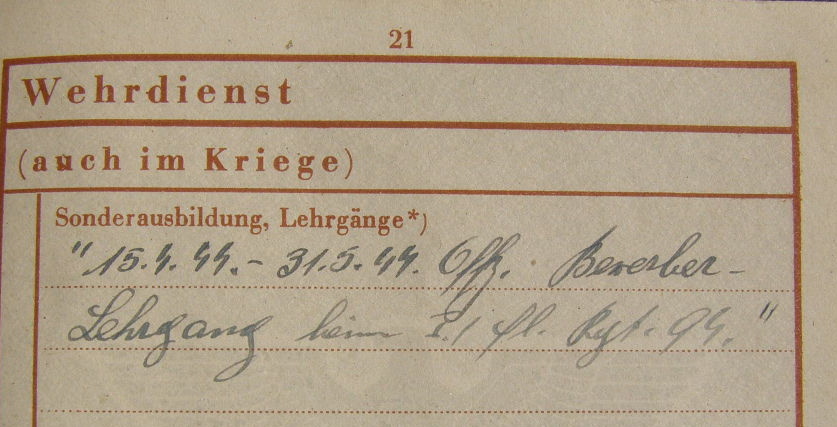 21
Wehrdienst
(auch im Kriege)
Sonderausbildung, Lehrgänge*)
"15.4.44. - 31.5.44. Offz. Bewerber-
Lehrgang beim I./ fl. Rgt. 94."